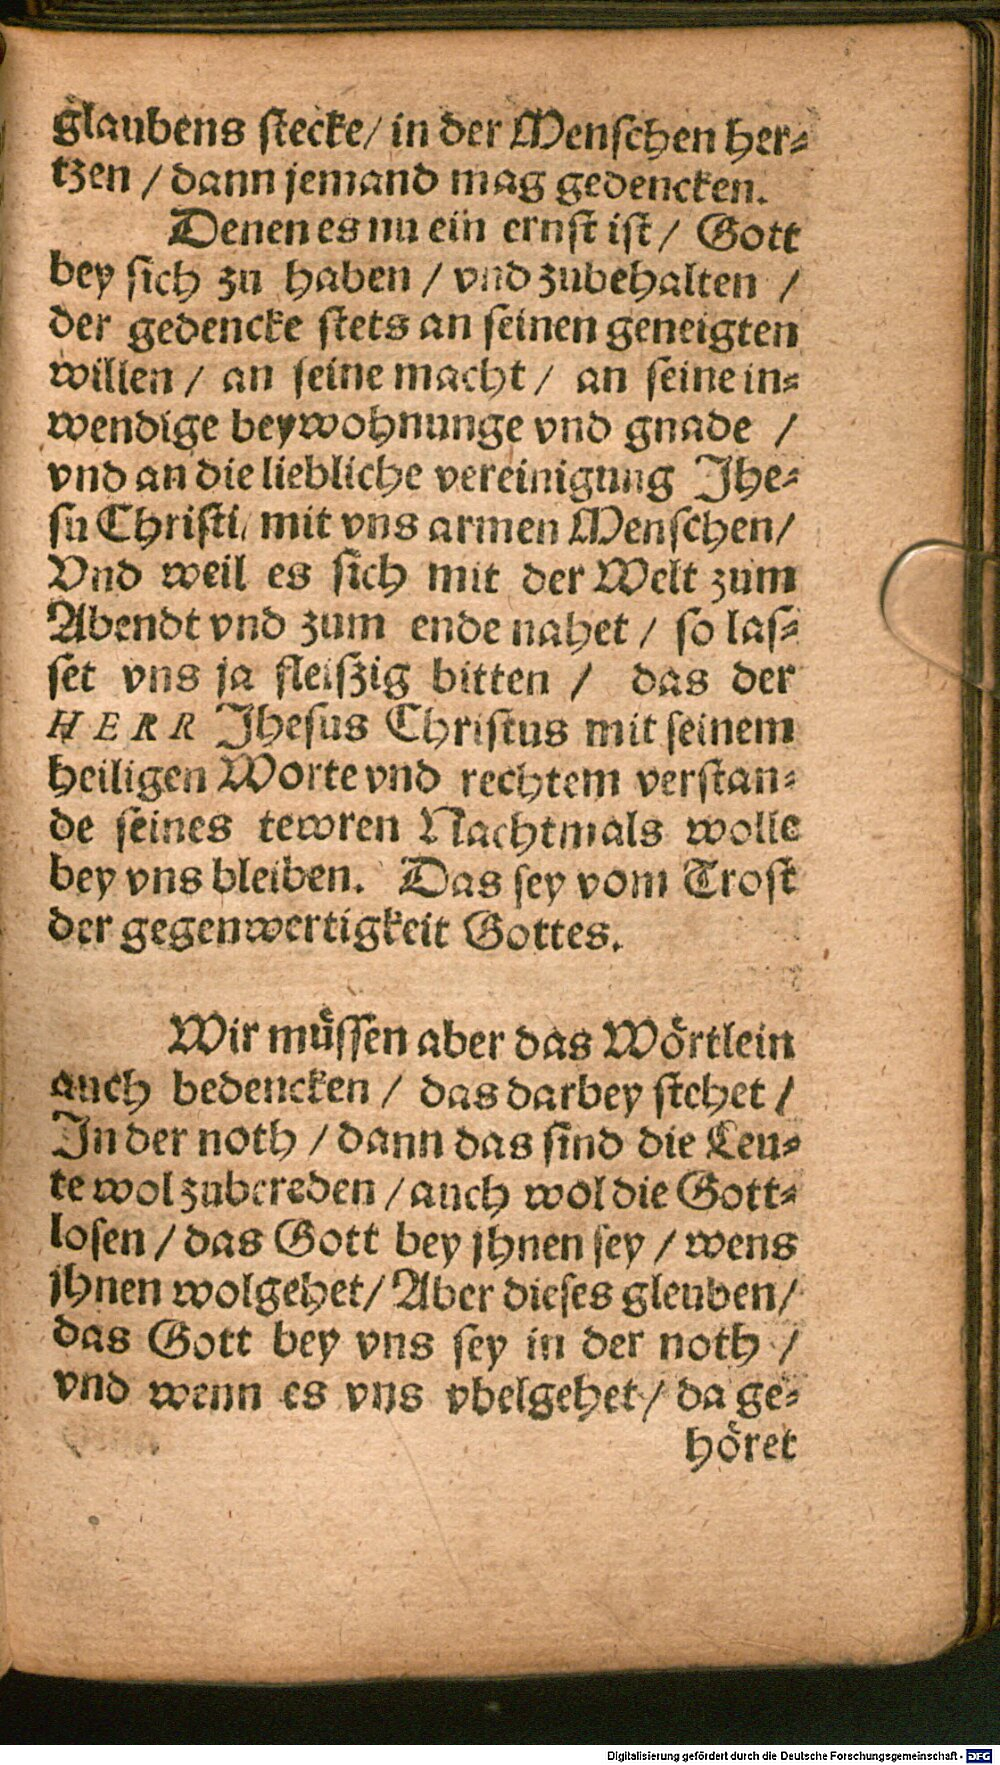 glaubens stecke/ in der Menschen her⸗
tzen / dann jemand mag gedencken.
Denen es nu ein ernst ist/ Gott
bey sich zu haben / vnd zubehalten /
der gedencke stets an seinen geneigten
willen / an seine macht / an seine in⸗
wendige beywohnunge vnd gnade /
vnd an die liebliche vereinigung Jhe⸗
su Christi/ mit vns armen Menschen/
Vnd weil es sich mit der Welt zum
Abendt vnd zum ende nahet / so las⸗
set vns ja fleiszig bitten / das der
HERR Jhesus Christus mit seinem
heiligen Worte vnd rechtem verstan⸗
de seines tewren Nachtmals wolle
bey vns bleiben. Das sey vom Trost
der gegenwertigkeit Gottes.
Wir müssen aber das Wörtlein
auch bedencken / das darbey stehet /
In der noth / dann das sind die Leu⸗
te wol zubereden / auch wol die Gott⸗
losen / das Gott bey jhnen sey / wens
jhnen wolgehet/ Aber dieses gleuben/
das Gott bey vns sey in der noth /
vnd wenn es vns vbelgehet / da ge⸗
höret
Digitalisierung gefördert durch die Deutsche Forschungsgemeinschaft - DFG